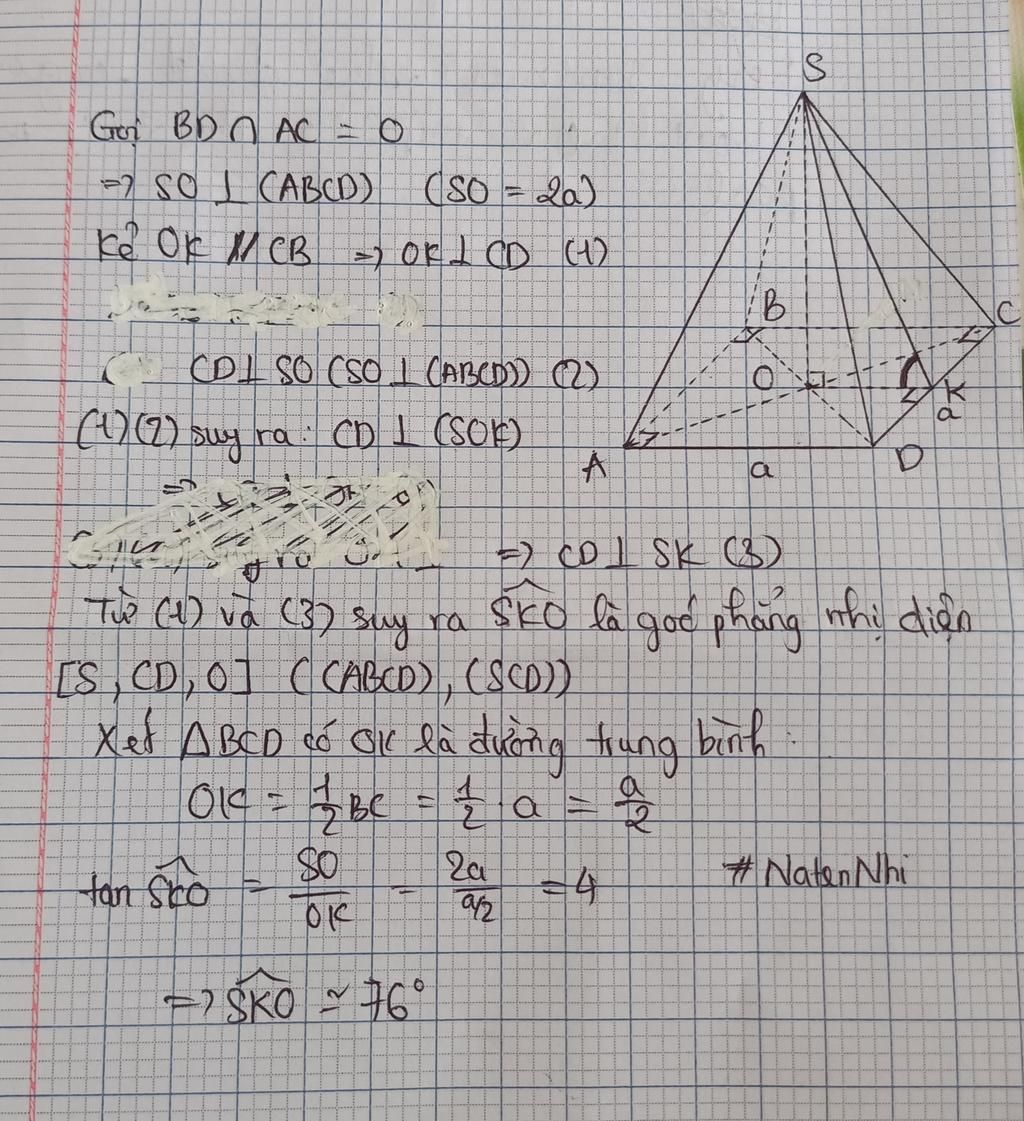 Gọi BD ∩ AC = O
=> SO ⊥ (ABCD) (SO = 2a)
Kẻ OK // CB => OK ⊥ CD (1)
CD ⊥ SO (SO ⊥ (ABCD)) (2)
(1)(2) suy ra: CD ⊥ (SOK)
=>
=> CD ⊥ SK (3)
Từ (1) và (3) suy ra \widehat{SKO} là góc phẳng nhị diện
[S, CD, O] ((ABCD), (SCD))
Xét ΔBCD có OK là đường trung bình:
OK = \frac{1}{2} BC = \frac{1}{2} . a = \frac{a}{2}
tan \widehat{SKO} = \frac{SO}{OK} = \frac{2a}{a/2} = 4
# NatenNhi
=> \widehat{SKO} ≃ 76°
S
B
C
O
K
a
A
a
D